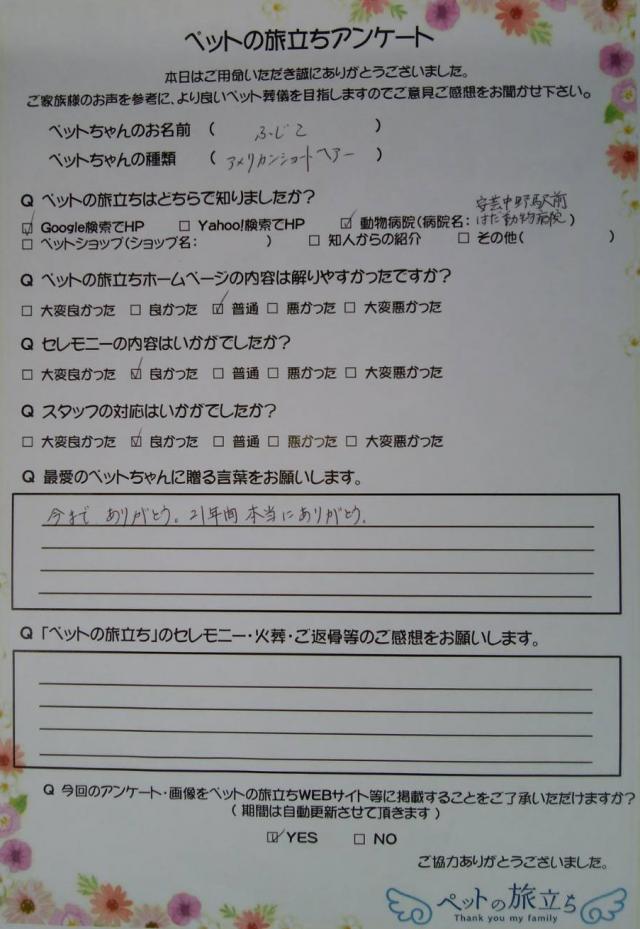 ペットの旅立ちアンケート
本日はご用命いただき誠にありがとうございました。
ご家族様のお声を参考に、より良いペット葬儀を目指しますのでご意見ご感想をお聞かせ下さい。
ペットちゃんのお名前 ( ふじこ )
ペットちゃんの種類 ( アメリカンショートヘアー )
Q ペットの旅立ちはどちらで知りましたか?
安芸中野駅前
☑ Google検索でHP □ Yahoo!検索でHP ☑ 動物病院(病院名: はだ動物病院 )
□ ペットショップ(ショップ名: ) □ 知人からの紹介 □ その他( )
Q ペットの旅立ちホームページの内容は解りやすかったですか?
□ 大変良かった □ 良かった ☑ 普通 □ 悪かった □ 大変悪かった
Q セレモニーの内容はいかがでしたか?
□ 大変良かった ☑ 良かった □ 普通 □ 悪かった □ 大変悪かった
Q スタッフの対応はいかがでしたか?
□ 大変良かった ☑ 良かった □ 普通 □ 悪かった □ 大変悪かった
Q 最愛のペットちゃんに贈る言葉をお願いします。
今まで ありがとう。21年間 本当にありがとう。
Q 「ペットの旅立ち」のセレモニー・火葬・ご返骨等のご感想をお願いします。
Q 今回のアンケート・画像をペットの旅立ちWEBサイト等に掲載することをご了承いただけますか?
( 期間は自動更新させて頂きます )
☑ YES □ NO
ご協力ありがとうございました。
ペットの旅立ち
Thank you my family